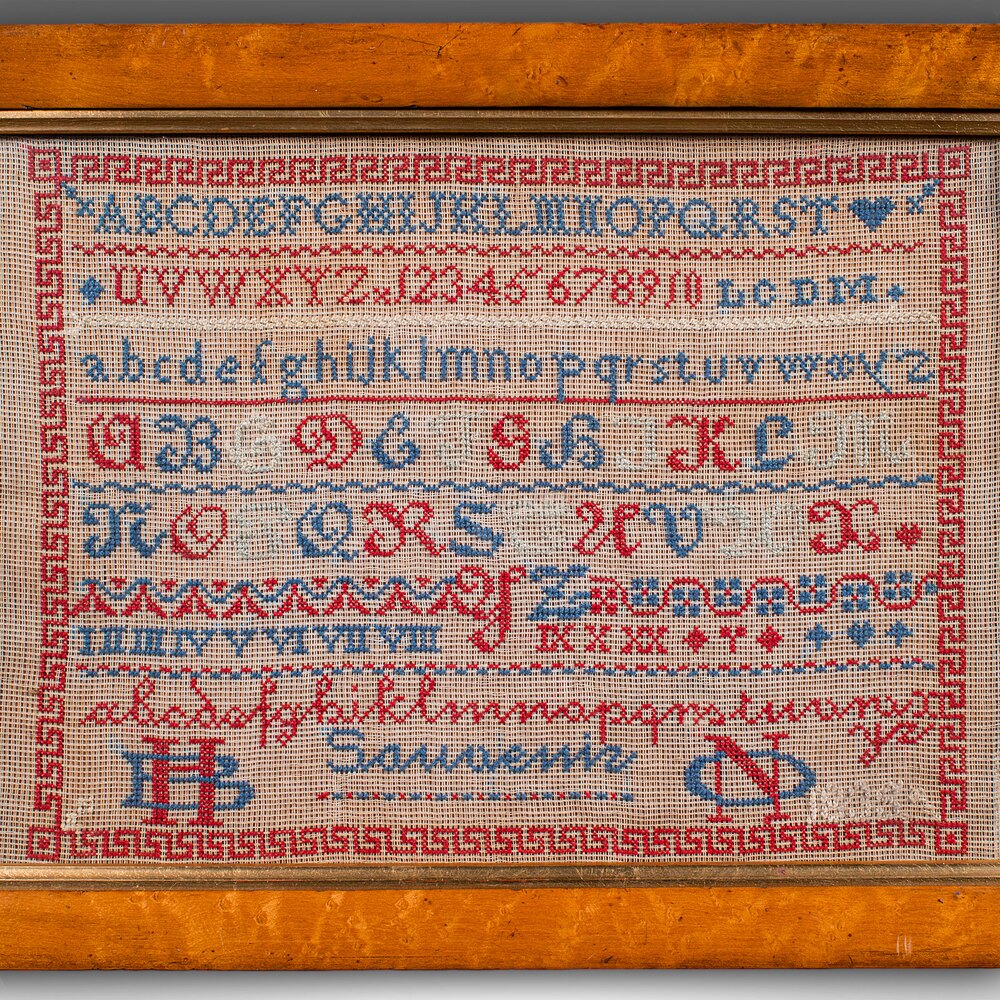 ABCDEFGHIJKLMNOPQRST
UVWXYZ 12345 678910 LCDM
abcdefghijklmnopqrstuvwxyz
ABCDEFGHIKLM
NOPQRSTUVWX
YZ
I II III IV V VI VII VIII IX X XX
abcdefghiklmnopqrstuvxyz
Souvenir
HB NO